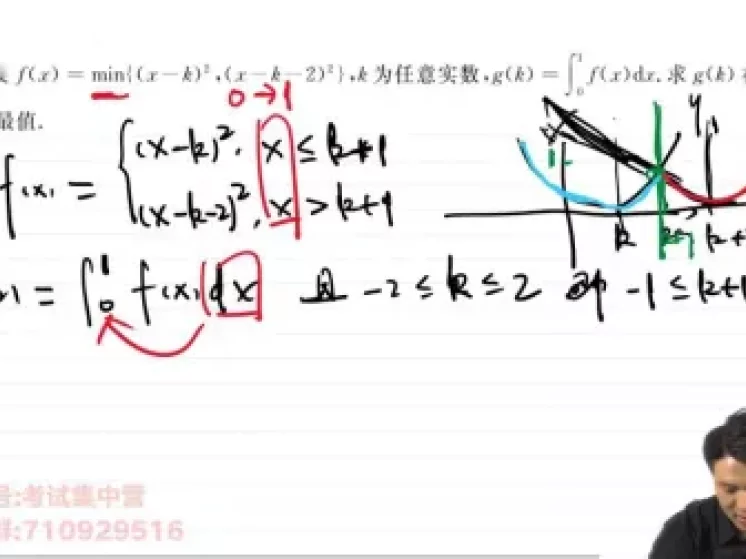 f(x) = min{(x-k)²,(x-k-2)²},k为任意实数,g(k)=∫₀¹f(x)dx.求g(k)
最值.
0→1
f(x) = { (x-k)², x≤k+1
(x-k-2)², x>k+1
k k+1
= ∫₀¹ f(x)dx 且 -2≤k≤2 即 -1≤k+1
:考试集中营
群:710929516